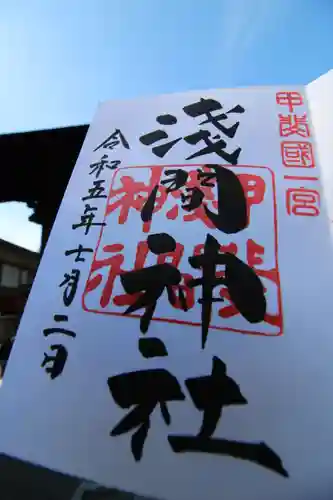 甲斐國一宮
淺間神社
令和五年十一月二日